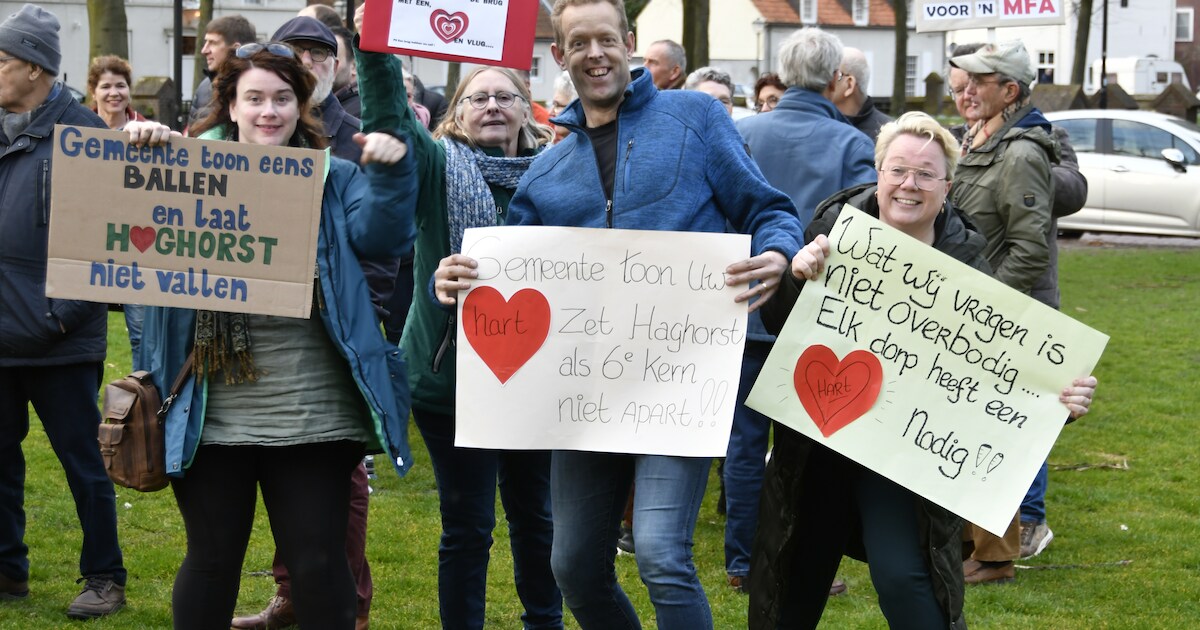 MET EEN, DE BRUG
EN VLUG....
VOOR 'N MFA
Gemeente toon eens
BALLEN
en laat
H❤GHORST
niet vallen
Gemeente toon Uw
hart
Zet Haghorst
als 6e Kern
niet APART!!
Wat wij vragen is
niet Overbodig....
Elk dorp heeft een
HART
Nodig!!